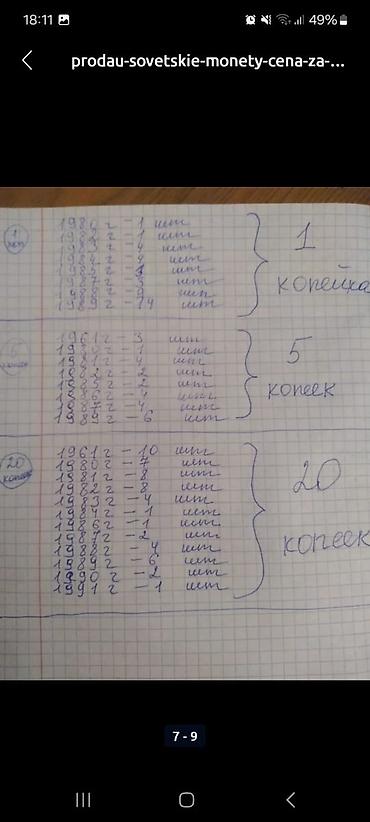 18:11
49%
prodau-sovetskie-monety-cena-za-...
1
1 копейка
198 г - 1 шт
198 г - 1 шт
198 г - 4 шт
1984 г - 4 шт
1985 г - шт
1987 г - шт
198 г - 9 шт
1989 г - 14 шт
5 копеек
1961 г - 3 шт
19 г - 1 шт
1981 г - 4 шт
1982 г - 2 шт
1985 г - 2 шт
1986 г - 4 шт
1987 г - 4 шт
1989 г - 6 шт
20 копеек
20 копеек
1961 г - 10 шт
1980 г - 7 шт
1981 г - 8 шт
1982 г - 8 шт
1983 г - 4 шт
1984 г - 1 шт
1986 г - 1 шт
1987 г - 2 шт
1988 г - 4 шт
1989 г - 6 шт
1990 г - 2 шт
1991 г - 1 шт
7 - 9